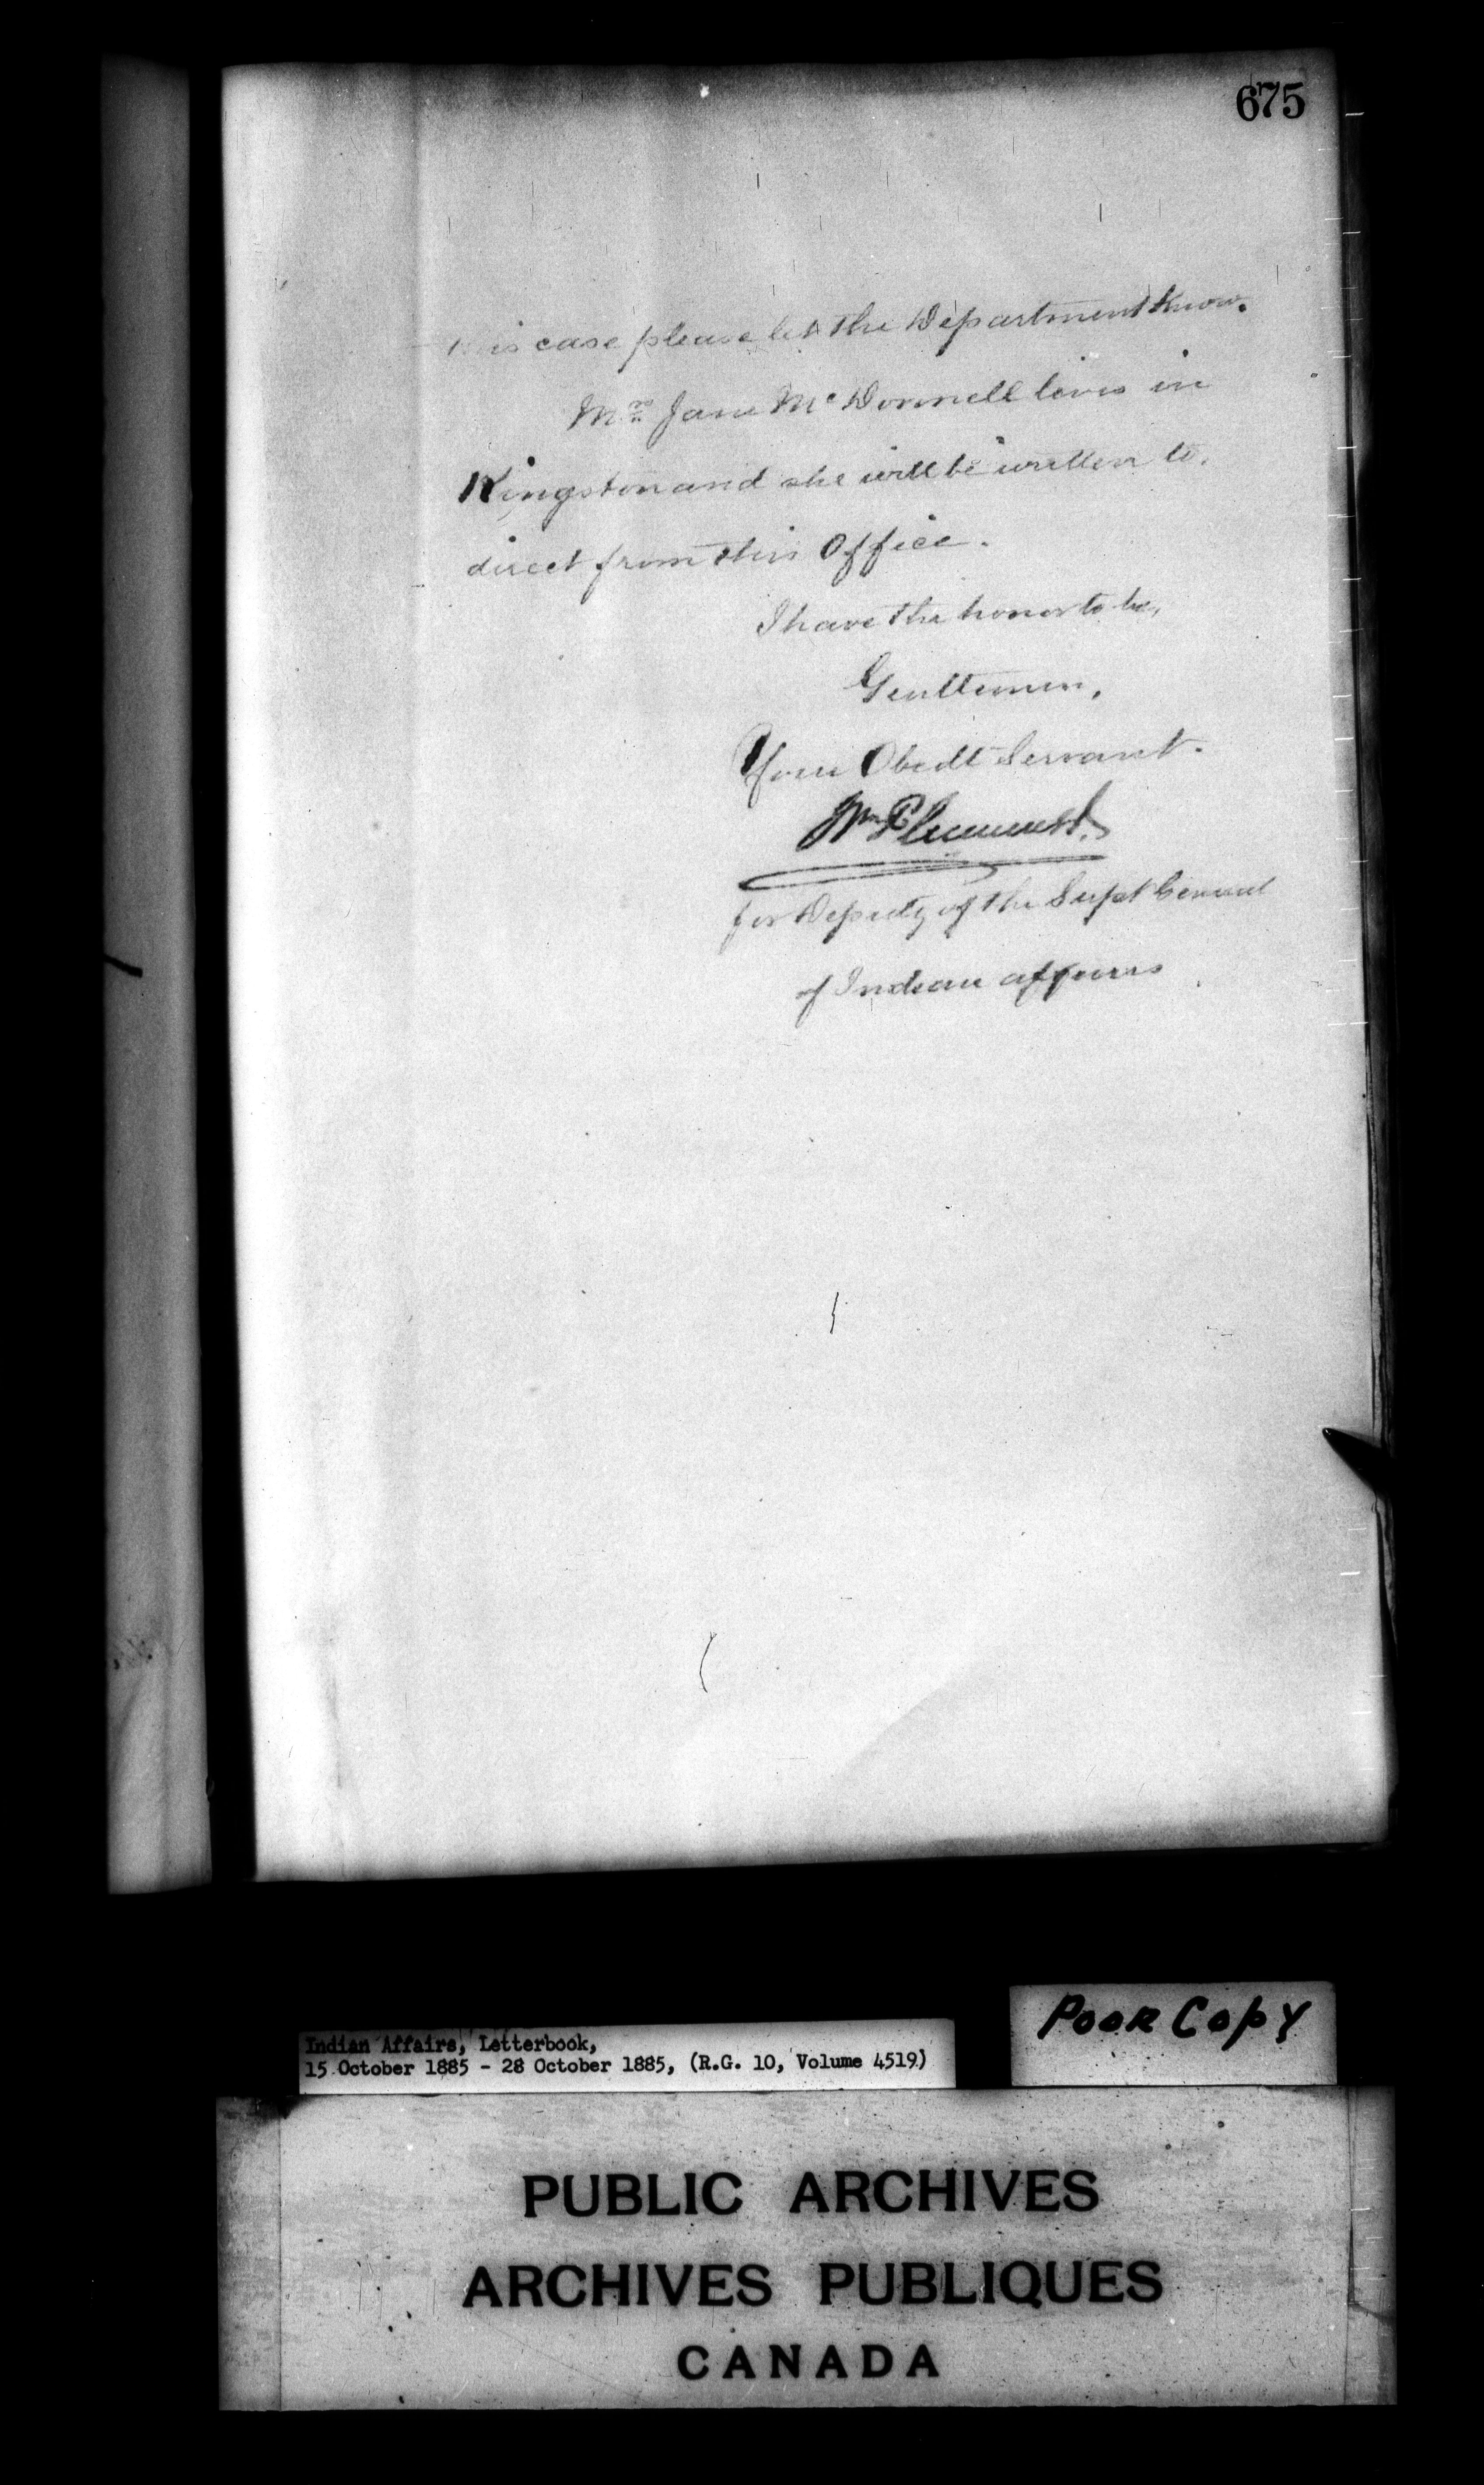 675
this case please let the Department know.
Mrs Jane McDonnell lives in
Kingston and she will be written to,
direct from this Office.
I have the honor to be,
Gentlemen,
Your Obedt Servant.
Wm Plummer
for Deputy of the Supt General
of Indian affairs
Poor Copy
Indian Affairs, Letterbook,
15 October 1885 - 28 October 1885, (R.G. 10, Volume 4519)
PUBLIC ARCHIVES
ARCHIVES PUBLIQUES
CANADA